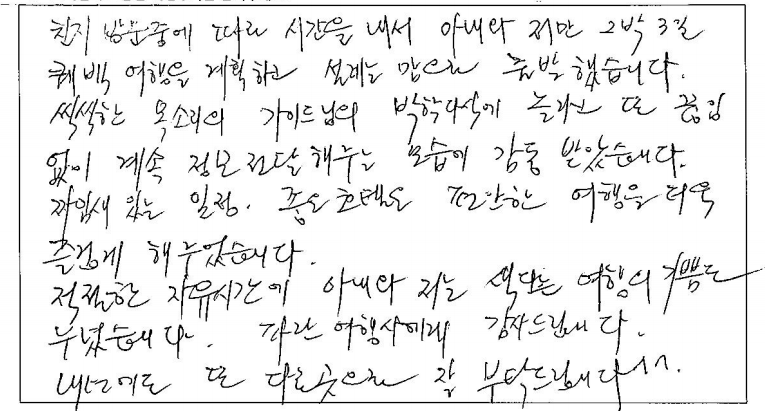 친지 방문중에 따로 시간을 내서 아내와 저만 2박 3일
퀘백 여행을 계획하고 설레는 맘으로 출발했습니다.
씩씩한 목소리의 가이드님의 박학다식에 놀라고 또 끊임
없이 계속 정보전달 해주는 모습에 감동 받았습니다.
짜임새 있는 일정. 좋은 호텔도 편안한 여행을 더욱
즐겁게 해주었습니다.
적절한 자유시간에 아내와 저는 색다른 여행의 기쁨도
누렸습니다. 파란여행사에게 감사드립니다.
내년에도 또 다른곳으로 잘 부탁드립니다^^.